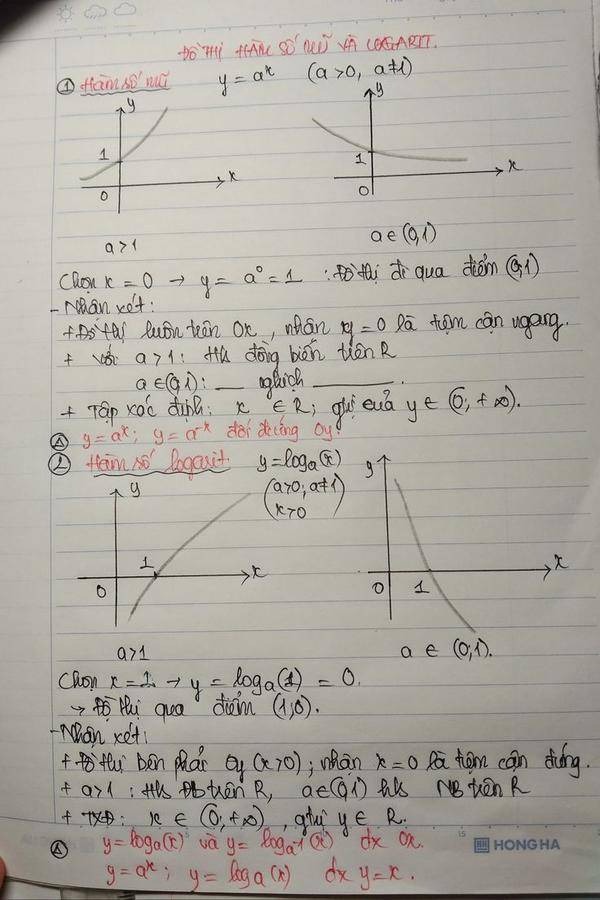 ĐỒ THỊ HÀM SỐ MŨ VÀ LOGARIT.
① Hàm số mũ y = aˣ (a>0, a≠1)
y y
1 1
x x
0 0
a>1 a∈(0,1)
Chọn x = 0 → y = a⁰ = 1 : Đồ thị đi qua điểm (0,1)
- Nhận xét:
+ Đồ thị luôn trên Ox, nhận y = 0 là tiệm cận ngang.
+ với a>1: Hs đồng biến trên R
a∈(0,1): __ nghịch ______.
+ Tập xác định: x ∈ R; gtrị của y ∈ (0; +∞).
y = aˣ; y = a⁻ˣ đối xứng Oy!
② Hàm số logarit y = logₐ(x)
(a>0; a≠1)
x>0
y y
1 x x
0 0 1
a>1 a ∈ (0;1).
Chọn x=1 → y = logₐ(1) = 0.
→ Đồ thị qua điểm (1;0).
- Nhận xét:
+ Đồ thị bên phải Oy (x>0); nhận x = 0 là tiệm cận đứng.
+ a>1 : Hs ĐB trên R, a∈(0,1) hs NB trên R
+ TXĐ: x ∈ (0; +∞), gtrị y ∈ R.
y = logₐ(x) và y = logₐ₋₁(x) đx Ox.
HONG HA
y = aˣ; y = logₐ(x) đx y = x.